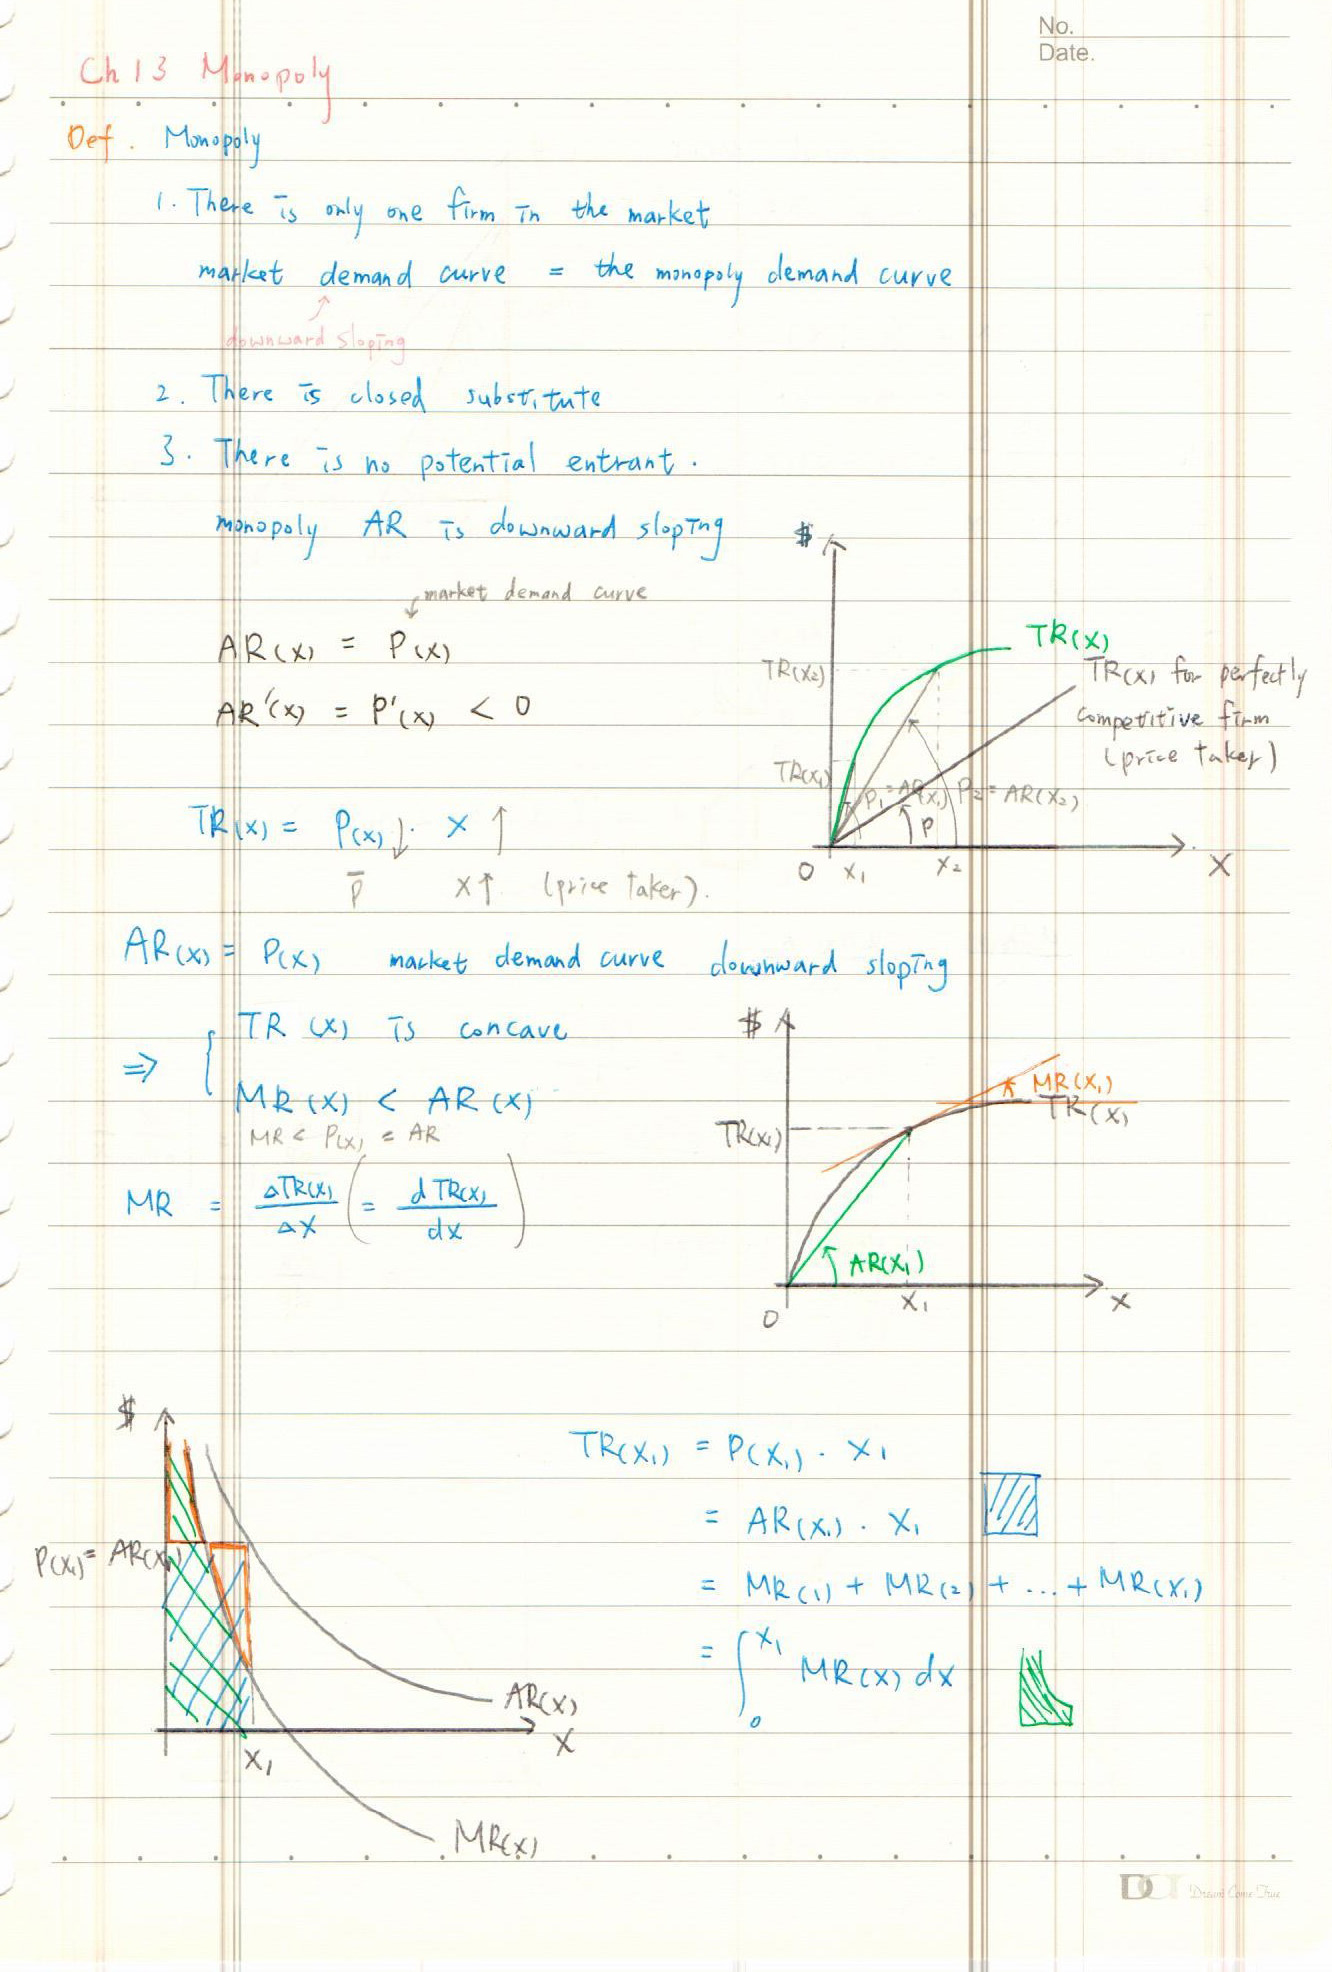 No.
Date.
Ch 13 Monopoly
Def. Monopoly
1. There is only one firm in the market
market demand curve = the monopoly demand curve
↑
downward sloping
2. There is closed substitute
3. There is no potential entrant.
monopoly AR is downward sloping
market demand curve
AR(x) = P(x)
AR'(x) = P'(x) < 0
$
TR(x)
TR(x₂)
TR(x) for perfectly
competitive firm
(price taker)
TR(x₁)
P₁ = AR(x₁) P₂ = AR(x₂)
P
O x₁ x₂ X
TR(x) = P(x)↓ · x ↑
P̄ x↑ (price taker).
AR(x) = P(x) market demand curve downward sloping
⇒ { TR(x) is concave
MR(x) < AR(x)
MR < P(x) = AR
MR = ΔTR(x)/Δx (= dTR(x)/dx)
$
MR(x₁)
TR(x)
TR(x₁)
AR(x₁)
O x₁ x
$
P(x₁) = AR(x₁)
AR(x)
X
x₁
MR(x)
TR(x₁) = P(x₁) · x₁
= AR(x₁) · x₁
= MR(1) + MR(2) + ... + MR(x₁)
= ∫₀^x₁ MR(x) dx
Dream Come True